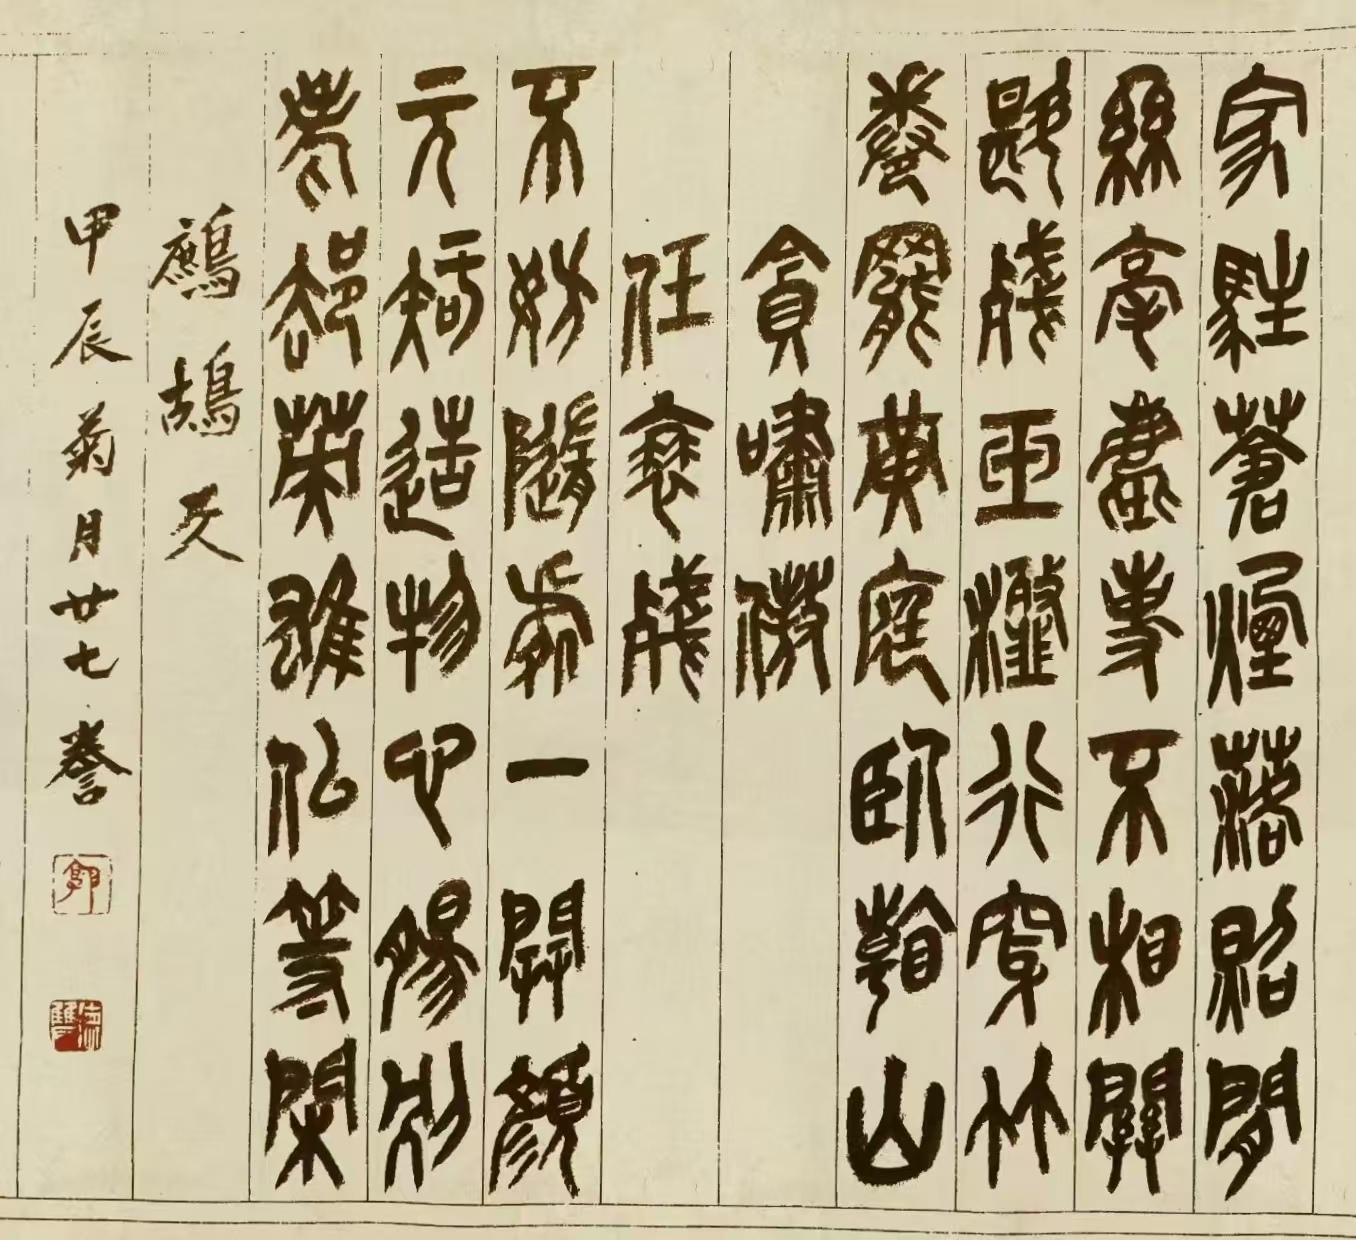 家駐蒼煙落照閒
絲毫塵事不相關
斟殘玉瀣行穿竹
卷罷黃庭臥看山
貪嘯傲
任衰殘
不妨隨處一開顏
元知造物心腸別
老卻英雄似等閑
鷓鴣天
甲辰菊月廿七誊